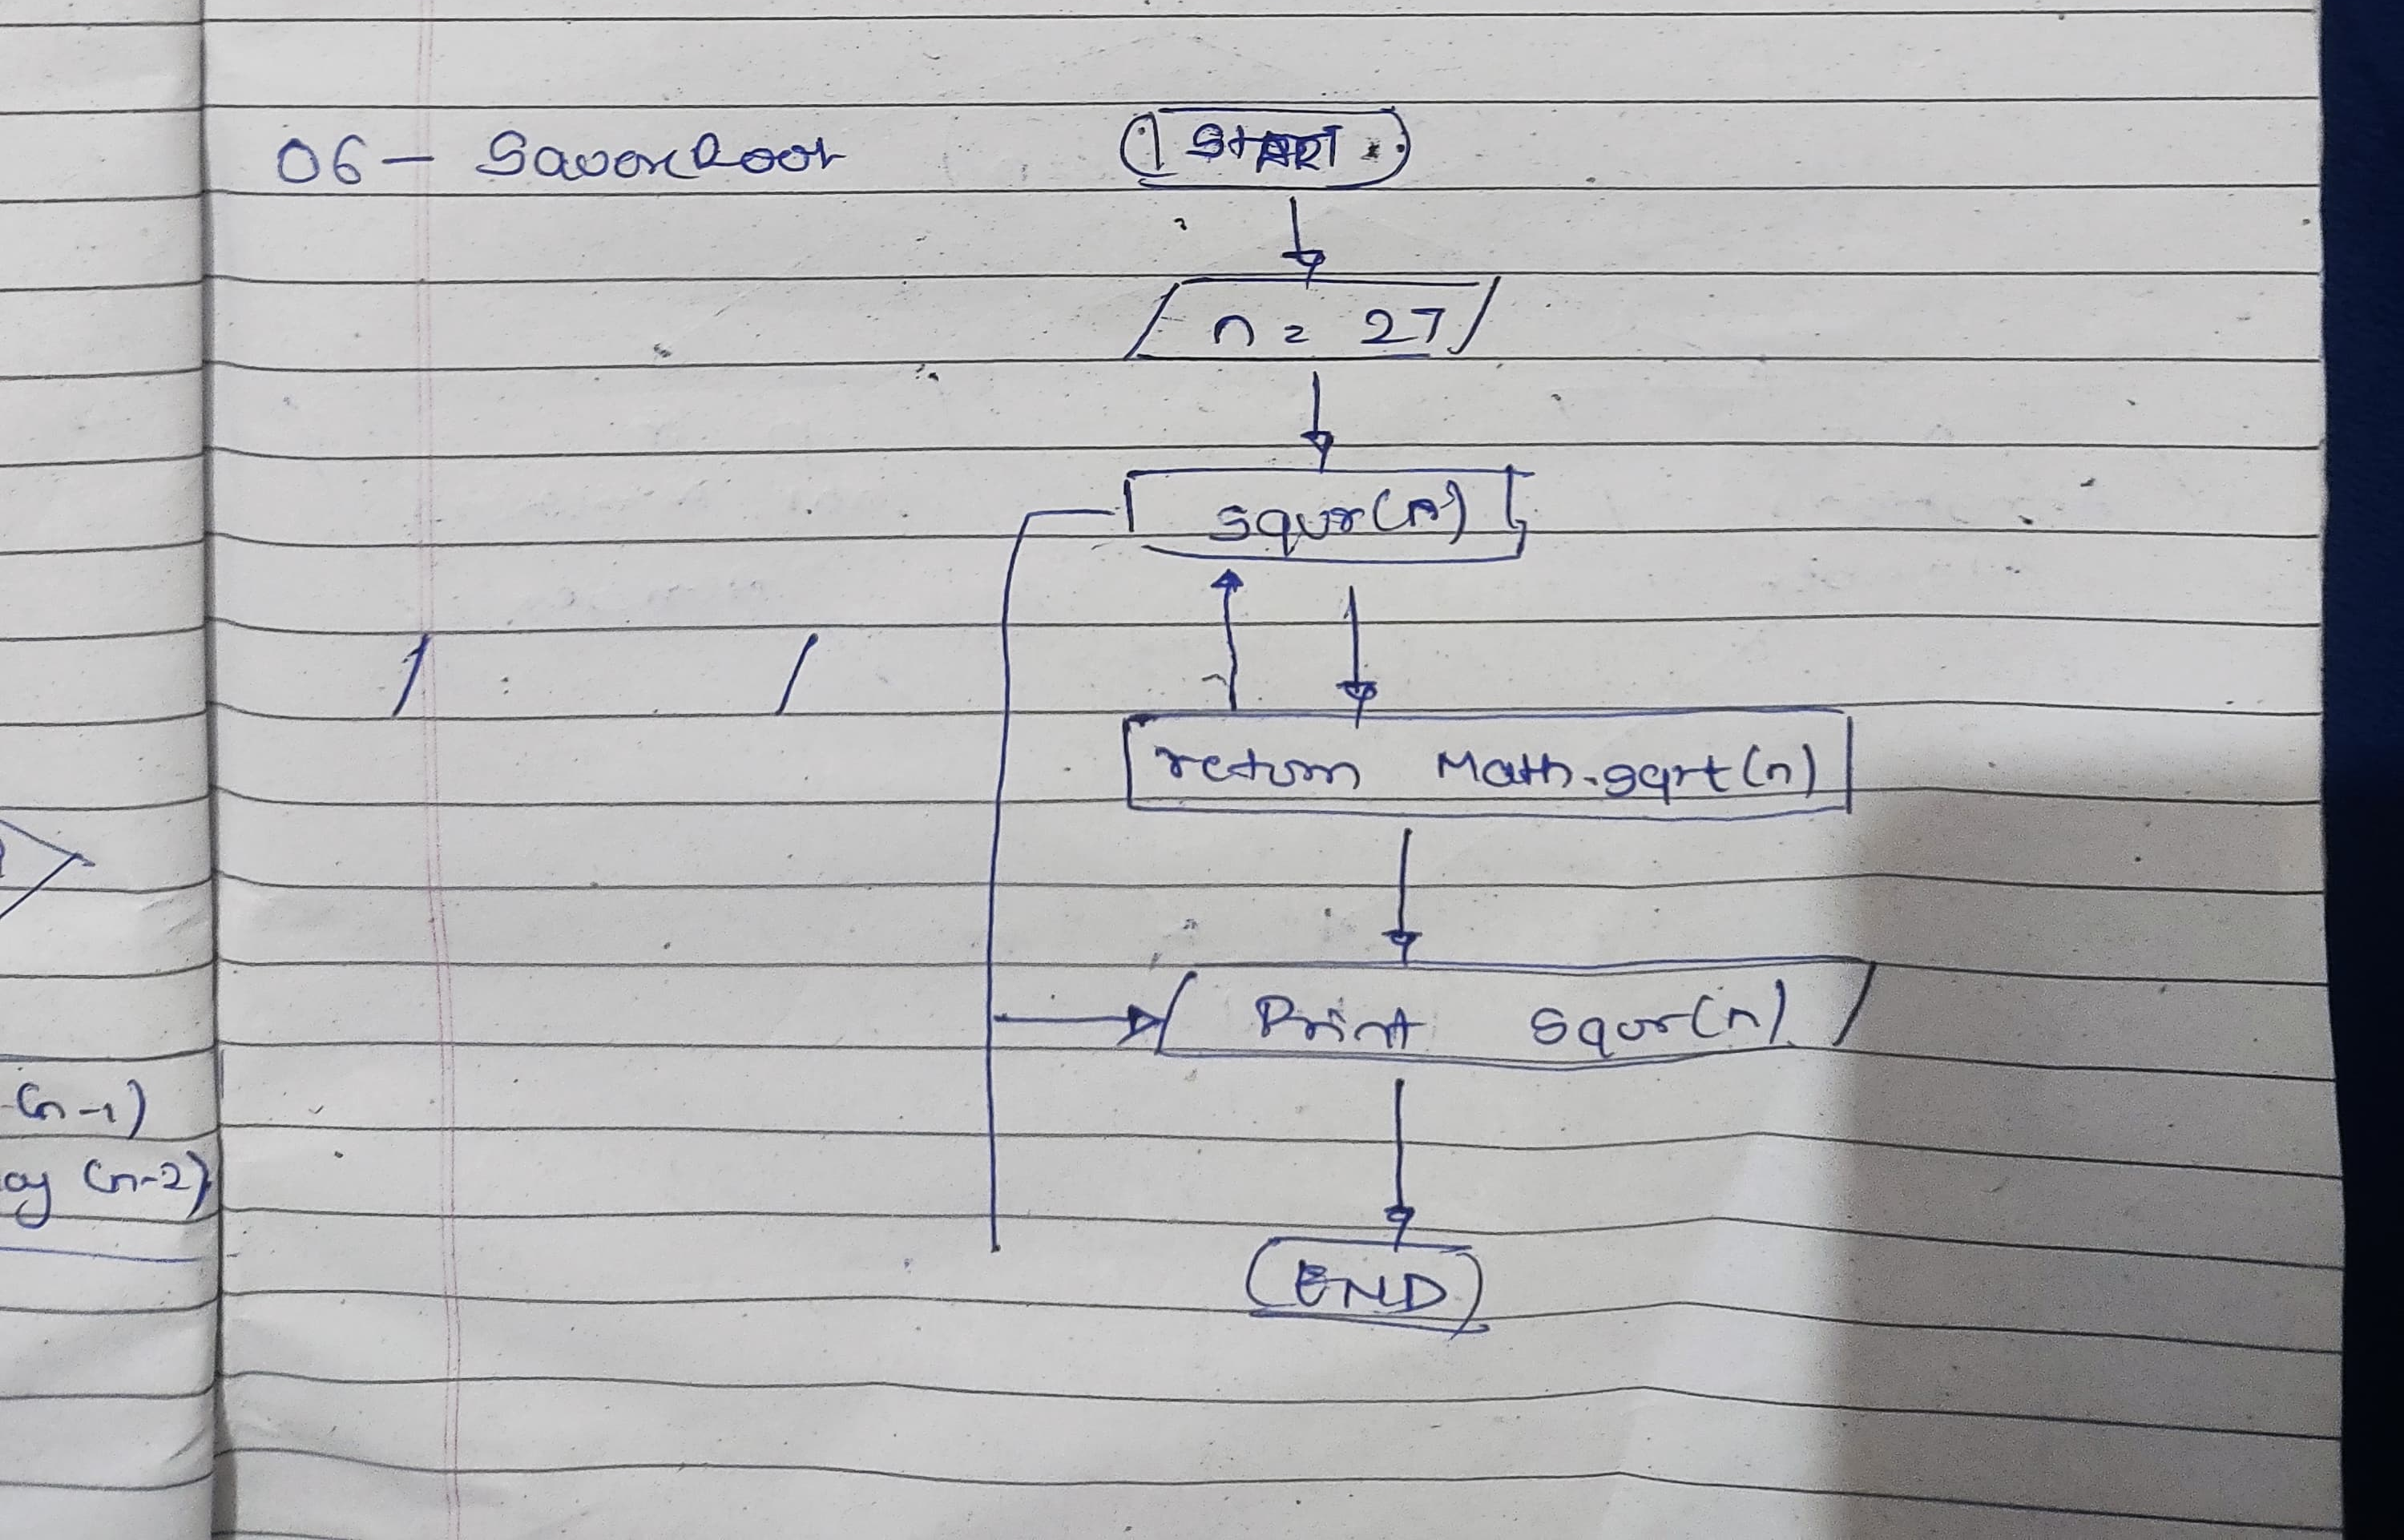 06 - SquareRoot
START
n = 27
squr(n)
return Math.sqrt(n)
Print squr(n)
END
(n-1)
(n-2)